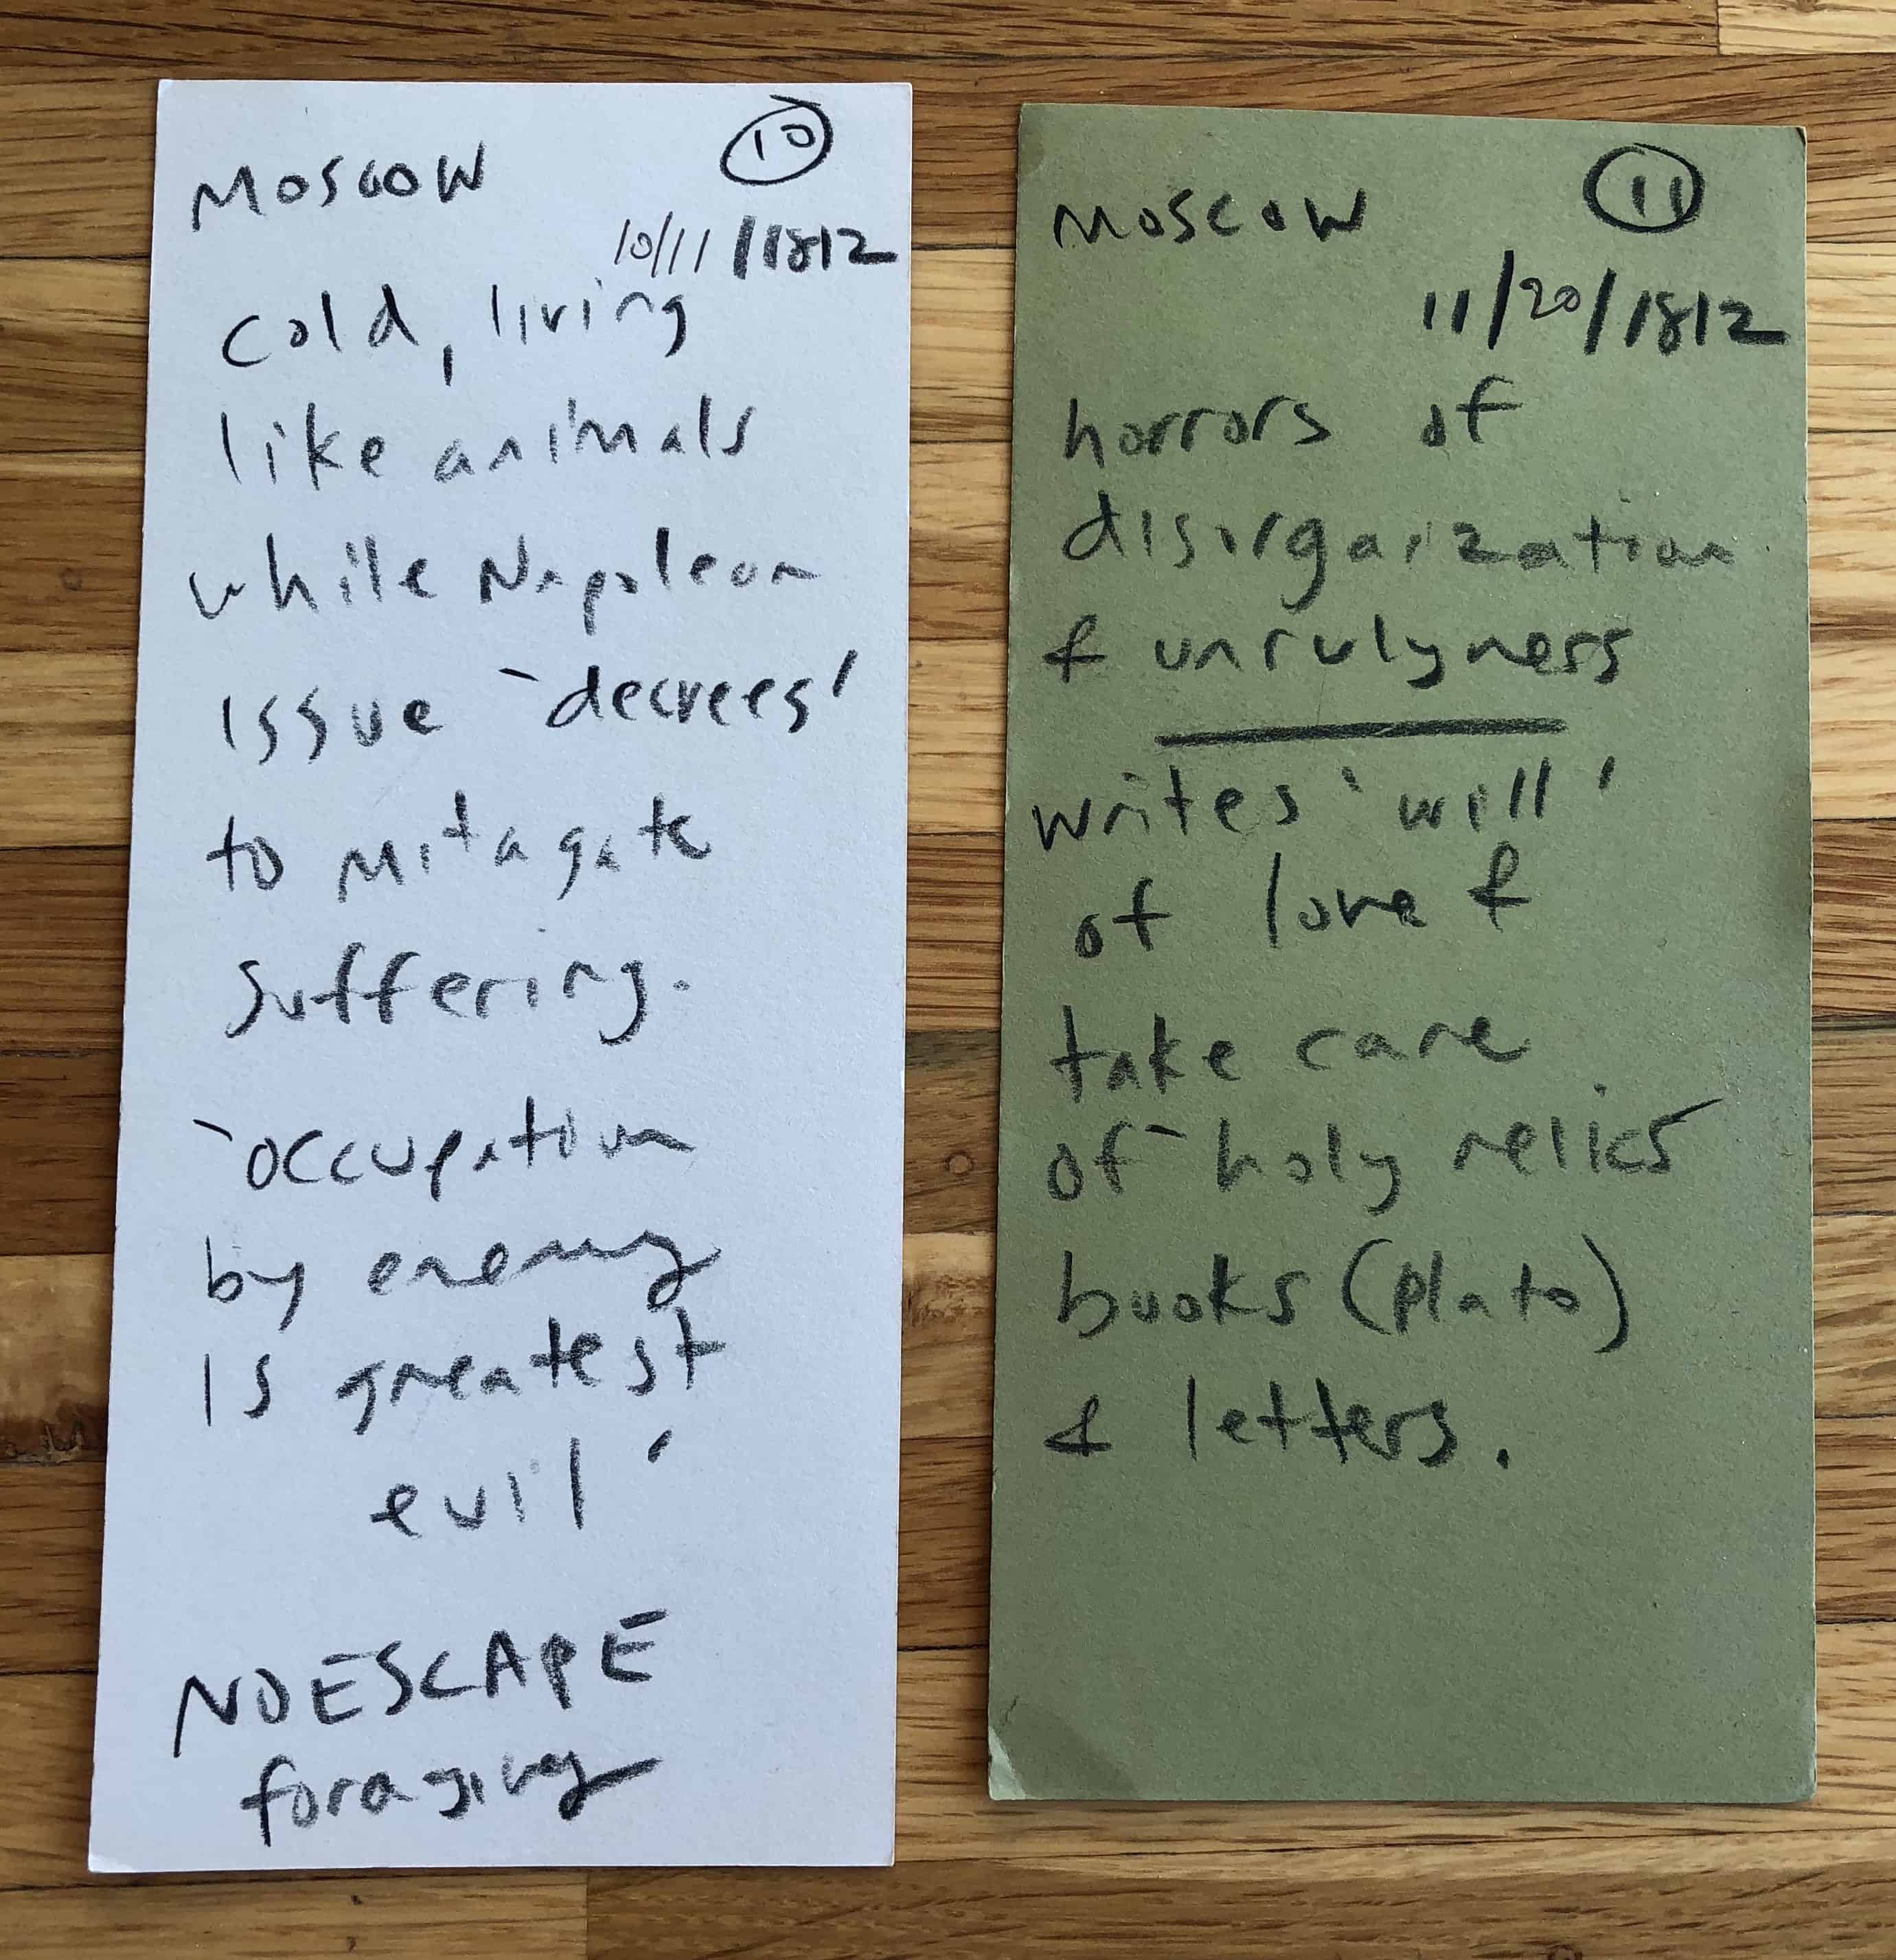 MOSCOW 10
10/11/1812
cold, living
like animals
while Napoleon
issue `decrees'
to mitagate
suffering.
`occupation
by enemy
is greatest
evil'
NO ESCAPE
foraging
MOSCOW 11
11/20/1812
horrors of
disorganization
& unrulyness
writes 'will'
of love &
take care
of holy relics
books (plato)
& letters.